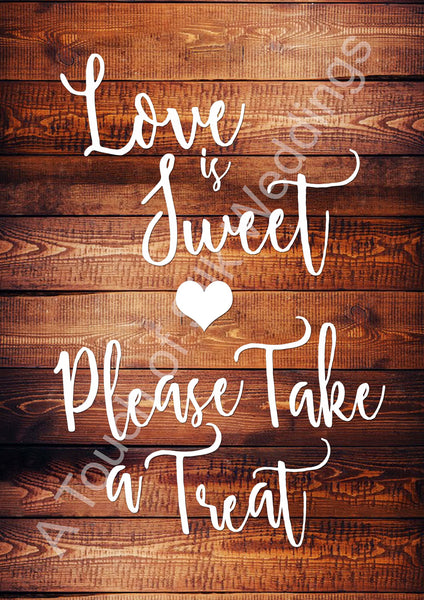 Love
is
Sweet
Please Take
a Treat
A Touch of Silk Weddings